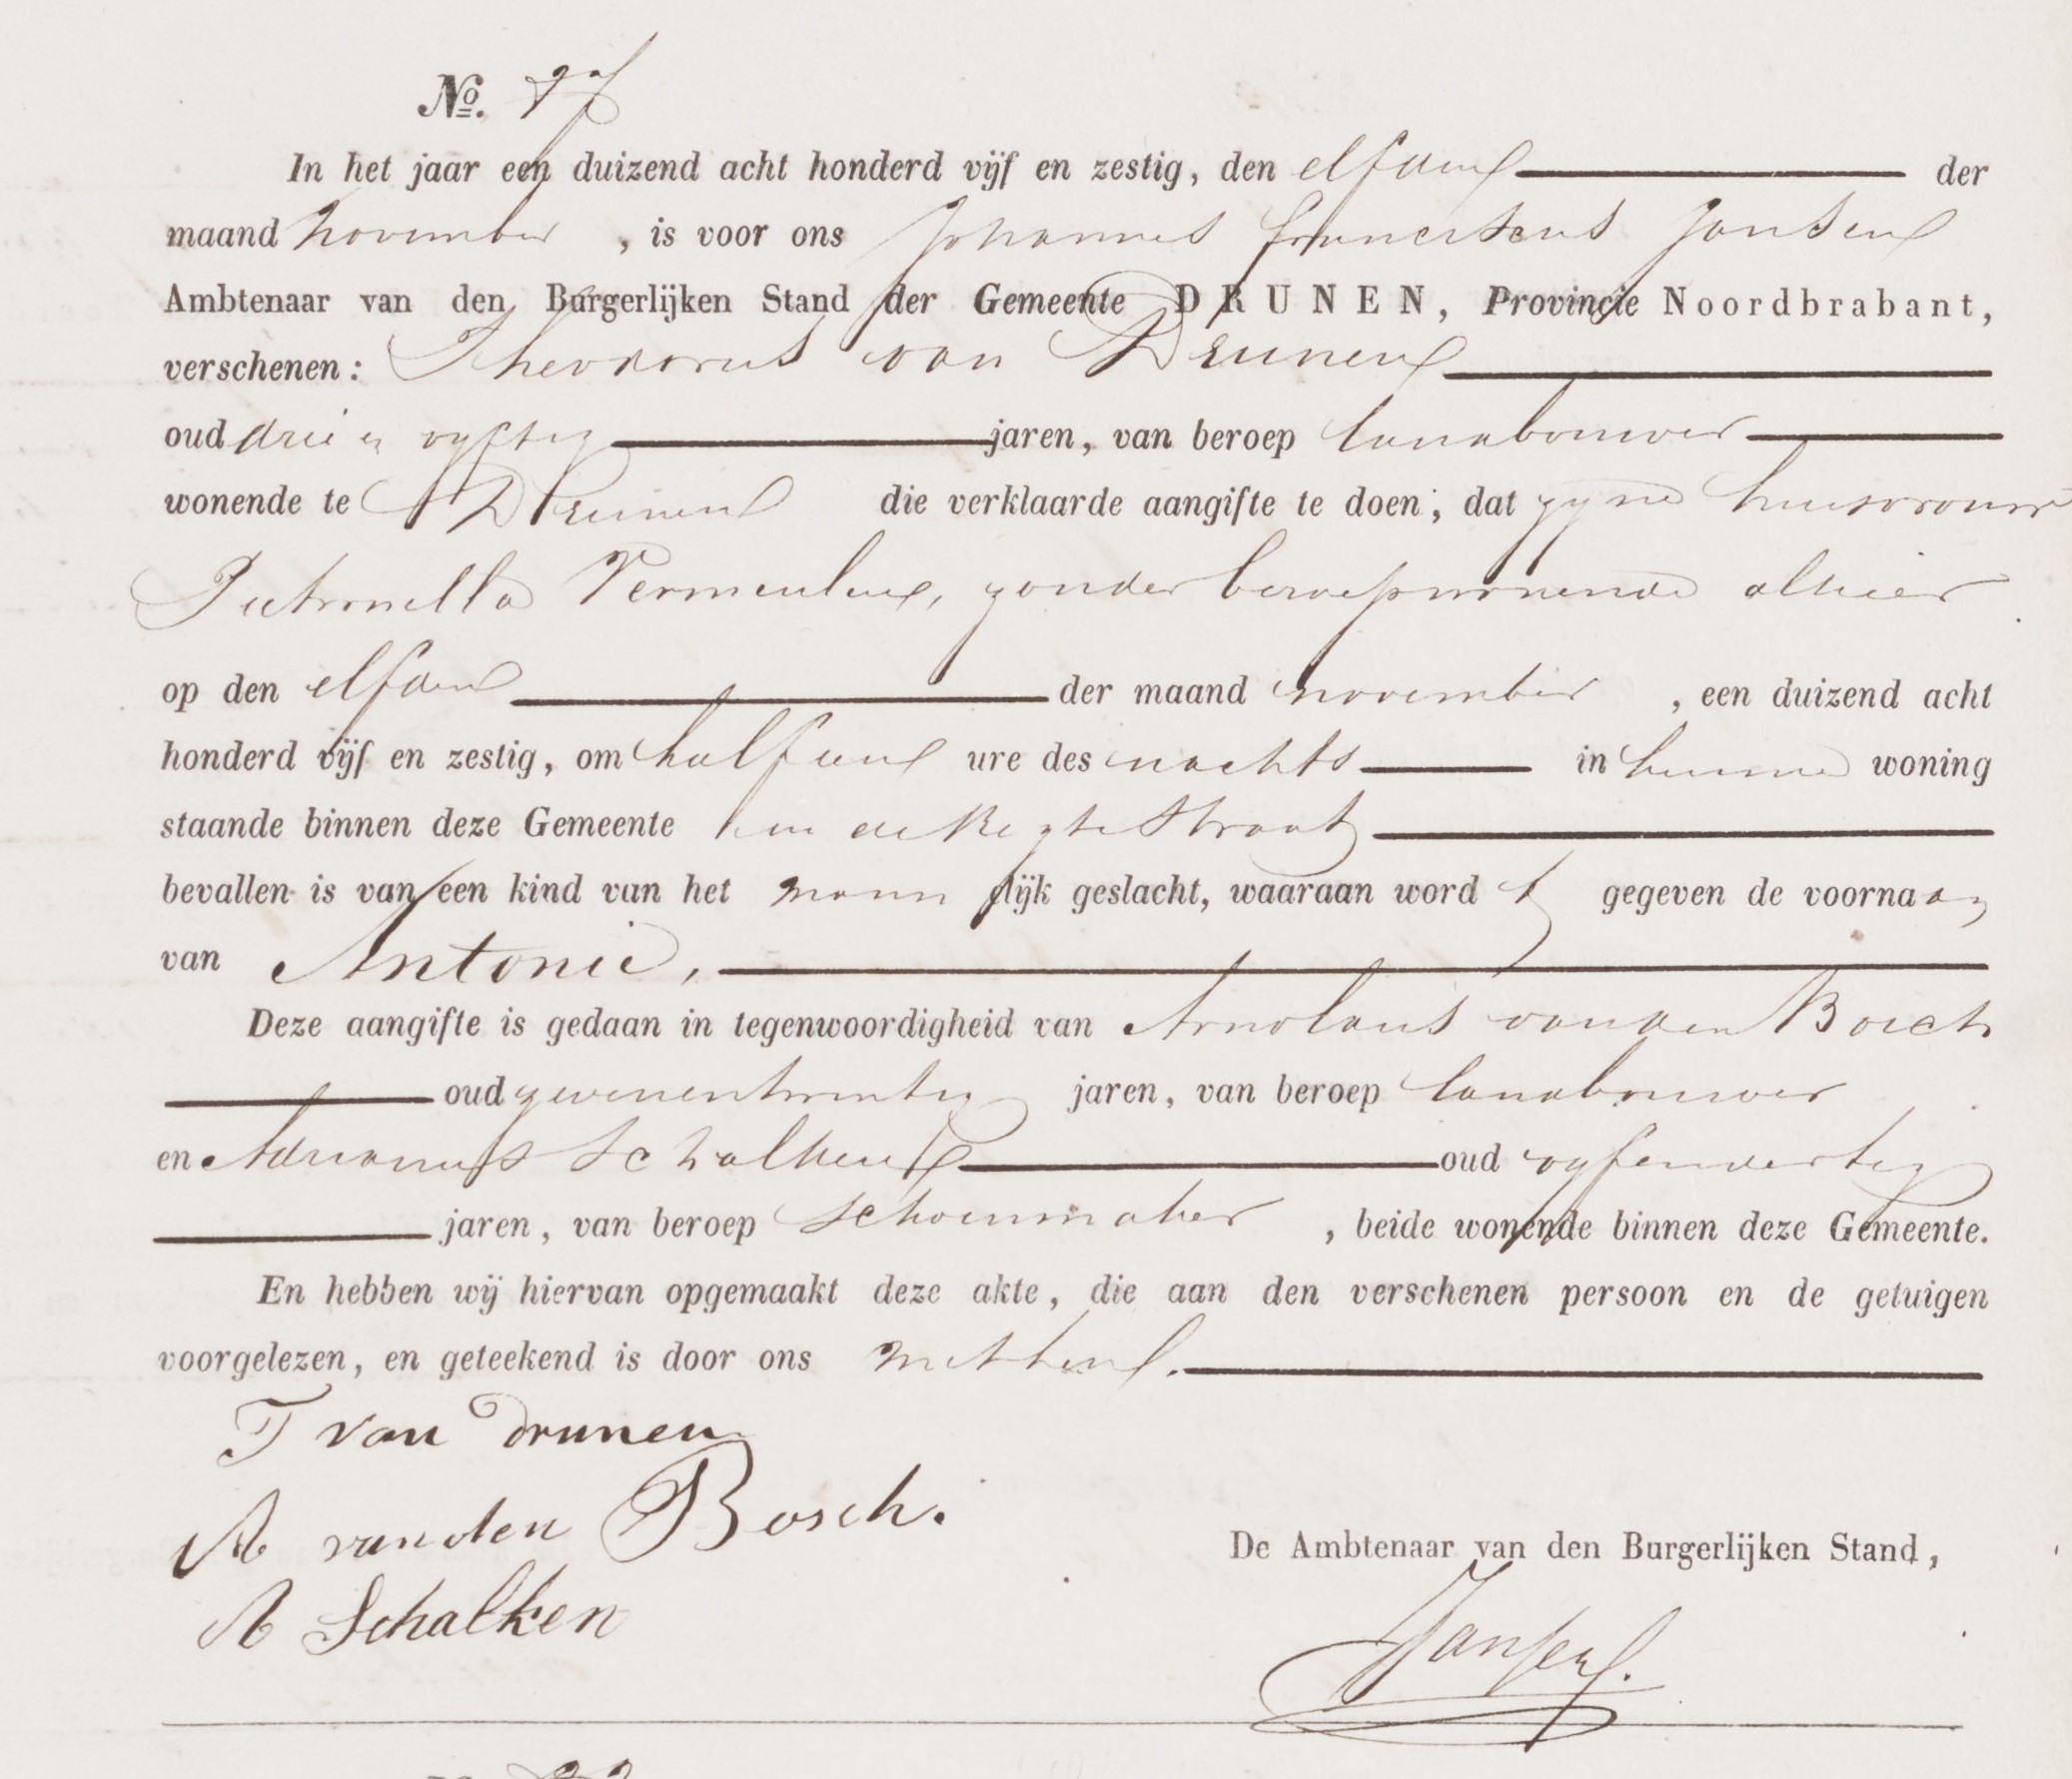 No. 77
In het jaar een duizend acht honderd vijf en zestig, den elfden der
maand November , is voor ons Johannes Franciscus Jansen
Ambtenaar van den Burgerlijken Stand der Gemeente DRUNEN, Provincie Noordbrabant,
verschenen: Theodorus van Drunen
oud drie en vyftig jaren, van beroep landbouwer
wonende te Drunen die verklaarde aangifte te doen, dat zyne huisvrouw
Petronella Vermeulen, zonder beroep wonende alhier
op den elfden der maand november , een duizend acht
honderd vijf en zestig, om half een ure des nachts in hunne woning
staande binnen deze Gemeente in de Regtestraat
bevallen is van een kind van het mannelijk geslacht, waaraan wordt gegeven de voornaam
van Antonie,
Deze aangifte is gedaan in tegenwoordigheid van Arnoldus van den Bosch
oud zevenentwintig jaren, van beroep landbouwer
en Adrianus Schalken oud vyfendertig
jaren, van beroep schoenmaker , beide wonende binnen deze Gemeente.
En hebben wij hiervan opgemaakt deze akte, die aan den verschenen persoon en de getuigen
voorgelezen, en geteekend is door ons met hen.
T van Drunen
A van den Bosch.
A Schalken
De Ambtenaar van den Burgerlijken Stand,
Jansen.